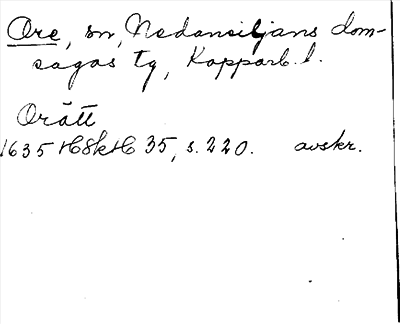 Ore, sn, Nedansiljans dom-
sagas tg, Kopparb. l.
Orätt
1635 HSkH 35, s. 220. avskr.